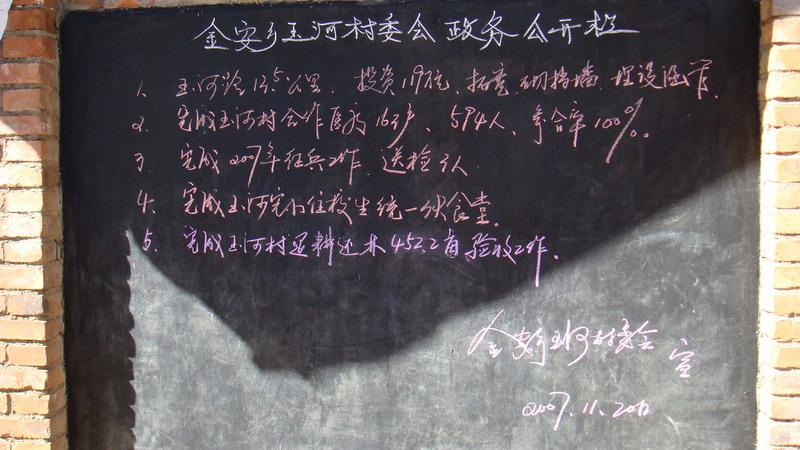 金安乡玉河村委会政务公开栏
1、玉河公里、投资19万元、拓宽、砌挡墙、埋设涵管。
2、完成玉河村合作医疗163户、594人、参合率100%。
3、完成2007年征兵工作、送检3人
4、完成玉河完小住校生统一伙食堂。
5、完成玉河村退耕还林452.2亩验收工作。
金安乡玉河村委会 宣
2007.11.20